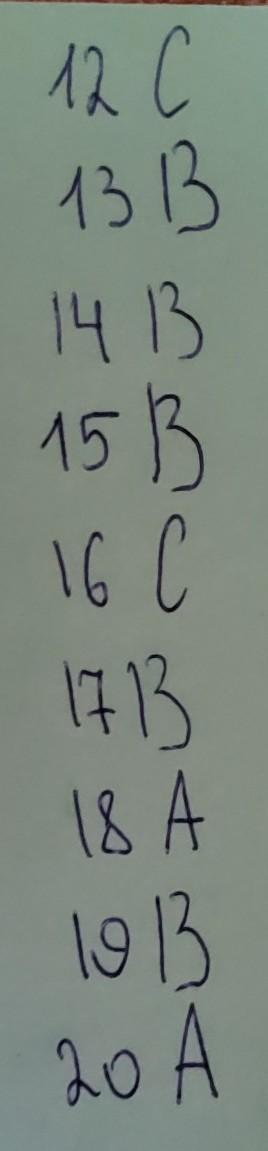 12 C
13 B
14 B
15 B
16 C
17 B
18 A
19 B
20 A